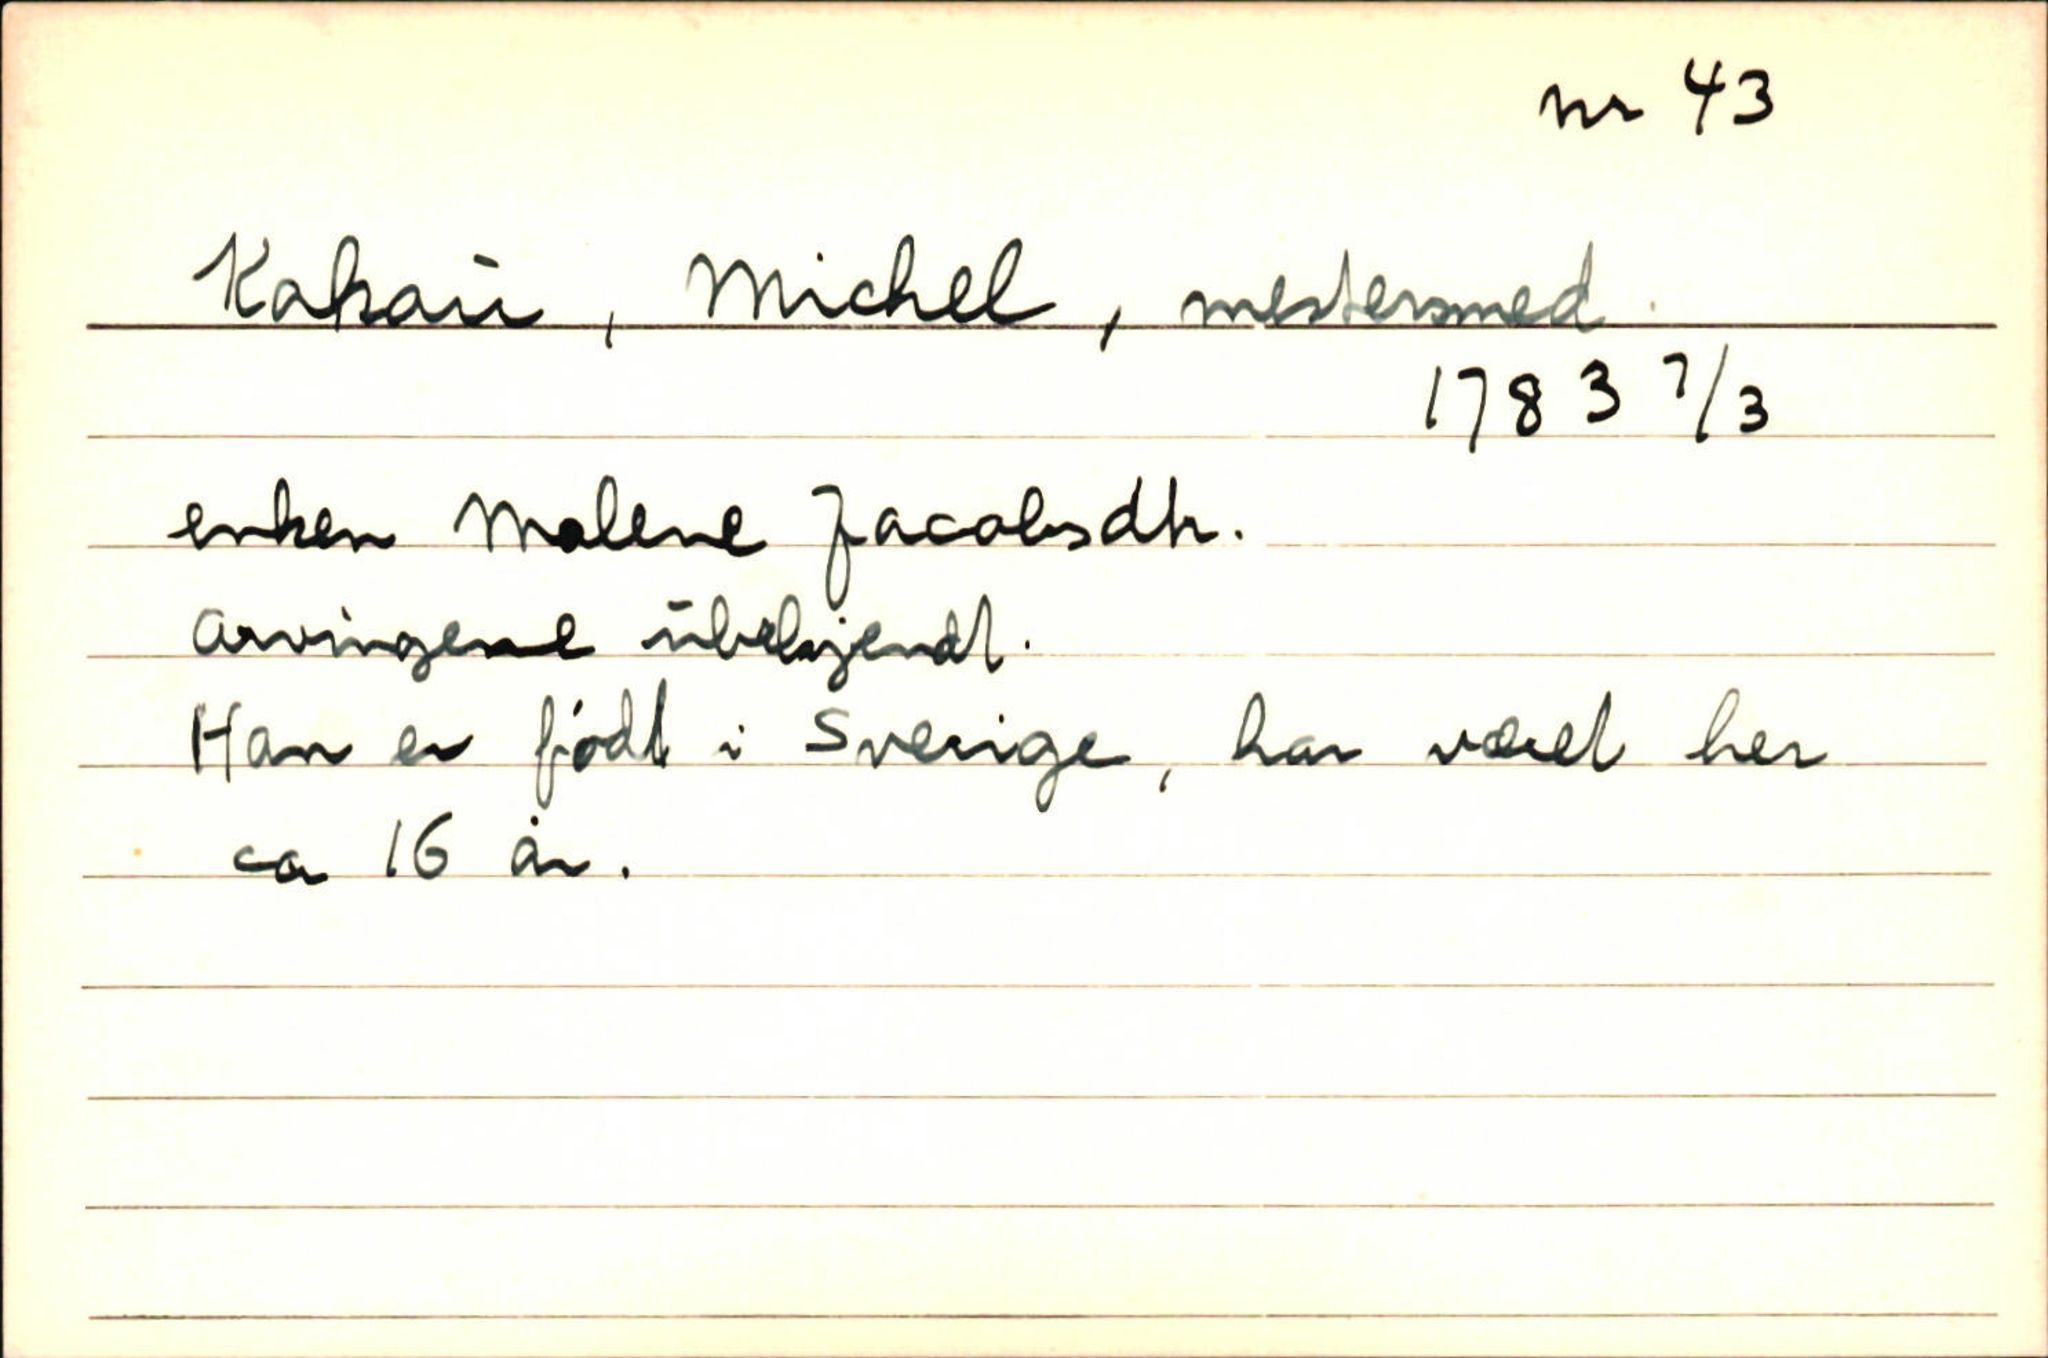 nr 43
Kakau, Michel, mestersmed.
1783 7/3
enken Malene Jacobsdtr.
Arvingene ubekjendt.
Han er født i Sverige, har været her
ca 16 år.